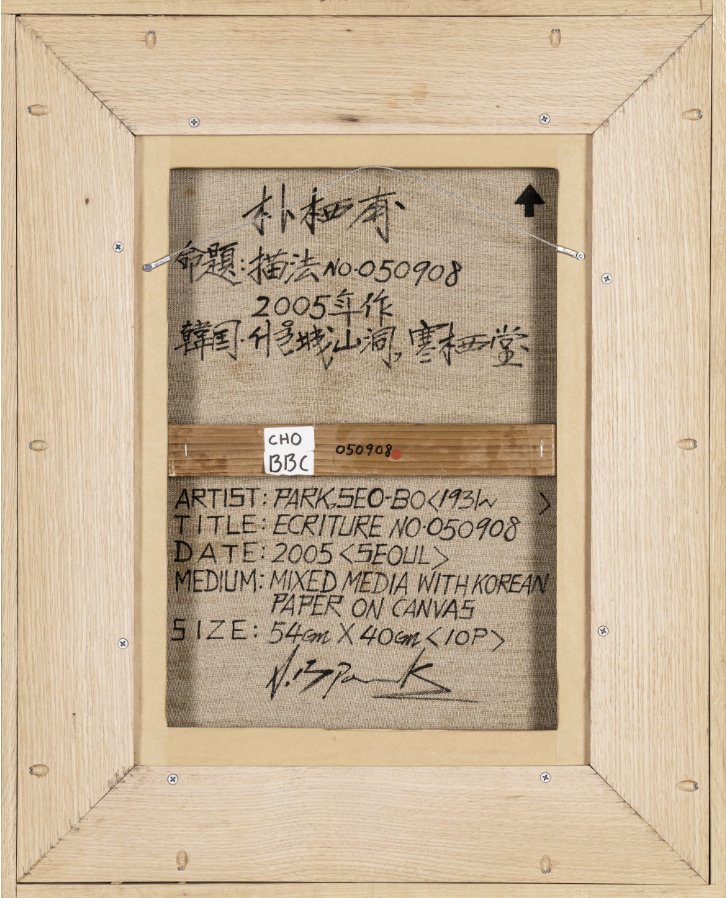 朴栖甫
命題:描法NO.050908
2005年作
韓国.서울城山洞,寒栖堂
CHO
BBC
050908
ARTIST: PARK,SEO-BO<1931~ >
TITLE: ECRITURE NO.050908
DATE: 2005<SEOUL>
MEDIUM: MIXED MEDIA WITH KOREAN
PAPER ON CANVAS
SIZE: 54cm X 40cm<10P>